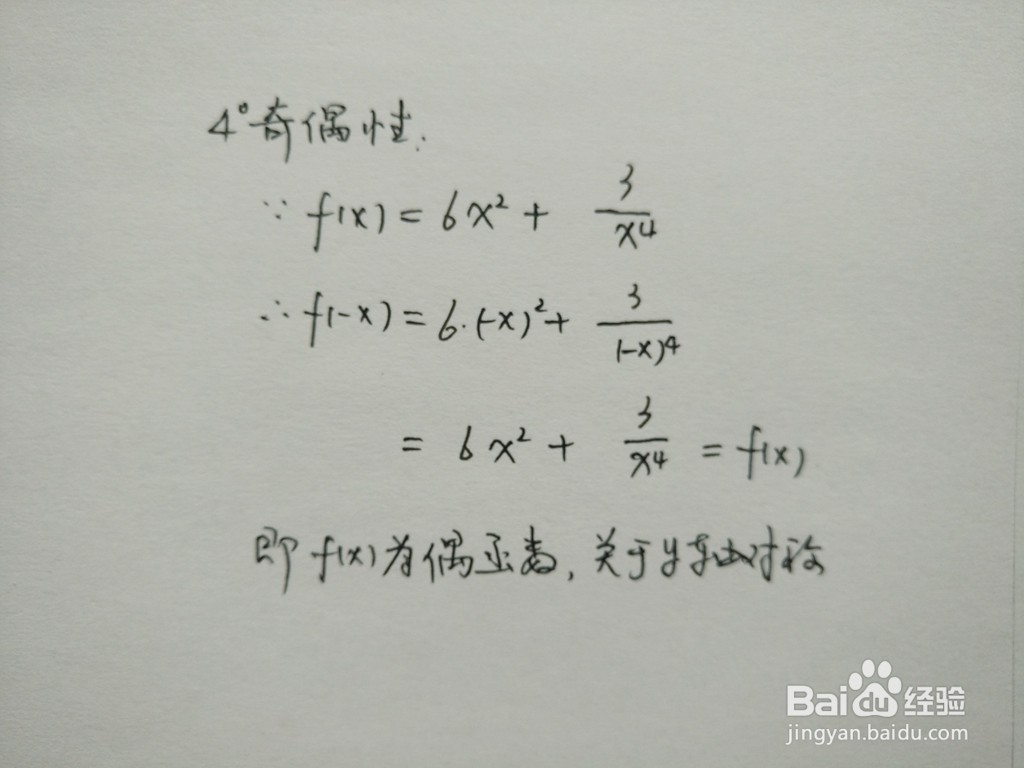 4°奇偶性.
∵ f(x) = 6x² + 3/x⁴
∴ f(-x) = 6·(-x)² + 3/(-x)⁴
= 6x² + 3/x⁴ = f(x)
即 f(x) 为偶函数, 关于y轴对称
Baidu经验
jingyan.baidu.com